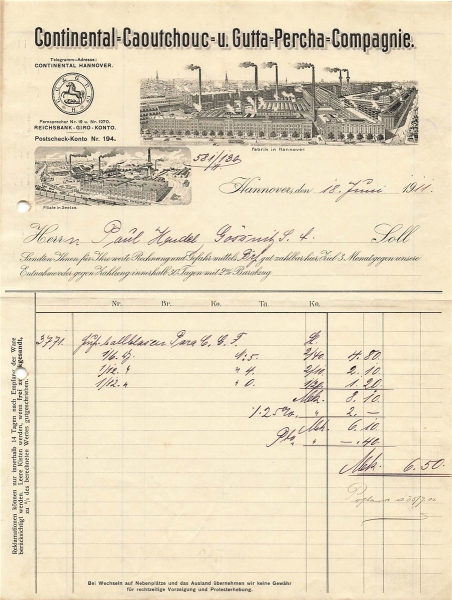 Continental-Caoutchouc- u. Gutta-Percha-Compagnie.
Telegramm-Adresse:
CONTINENTAL HANNOVER.
Fernsprecher Nr. 19 u. Nr. 1270.
REICHSBANK-GIRO-KONTO.
Postscheck-Konto Nr. 194.
Fabrik in Hannover
Filiale in Seelze
Hannover, den 18. Juni 1911.
Herrn Paul Hendel Gössnitz S. A. Soll
Sandten Ihnen für Ihre werte Rechnung und Gefahr mittels Post gut zahlbar hier Ziel 3 Monat gegen unsere
Entnahme oder gegen Zahlung innerhalb 30 Tagen mit 2% Barabzug.
Nr. Br. Ko. Tn. Ko.
3771. Para C. C. F.
1/6 G 1:5. 2/40 4.80
1/12. " " 4. 2/10 2.10
1/12. " " 0. 1/20 1.20
Mk. 8.10
% 25% " 2.—
Mk. 6.10
Pto " —.40
Mk. 6.50
Reklamationen können nur innerhalb 14 Tagen nach Empfang der Ware
berücksichtigt werden. Leere Kisten werden, wenn frei zugesandt,
zu ⅔ des berechneten Wertes gutgeschrieben.
Bei Wechseln auf Nebenplätze und das Ausland übernehmen wir keine Gewähr
für rechtzeitige Vorzeigung und Protesterhebung.